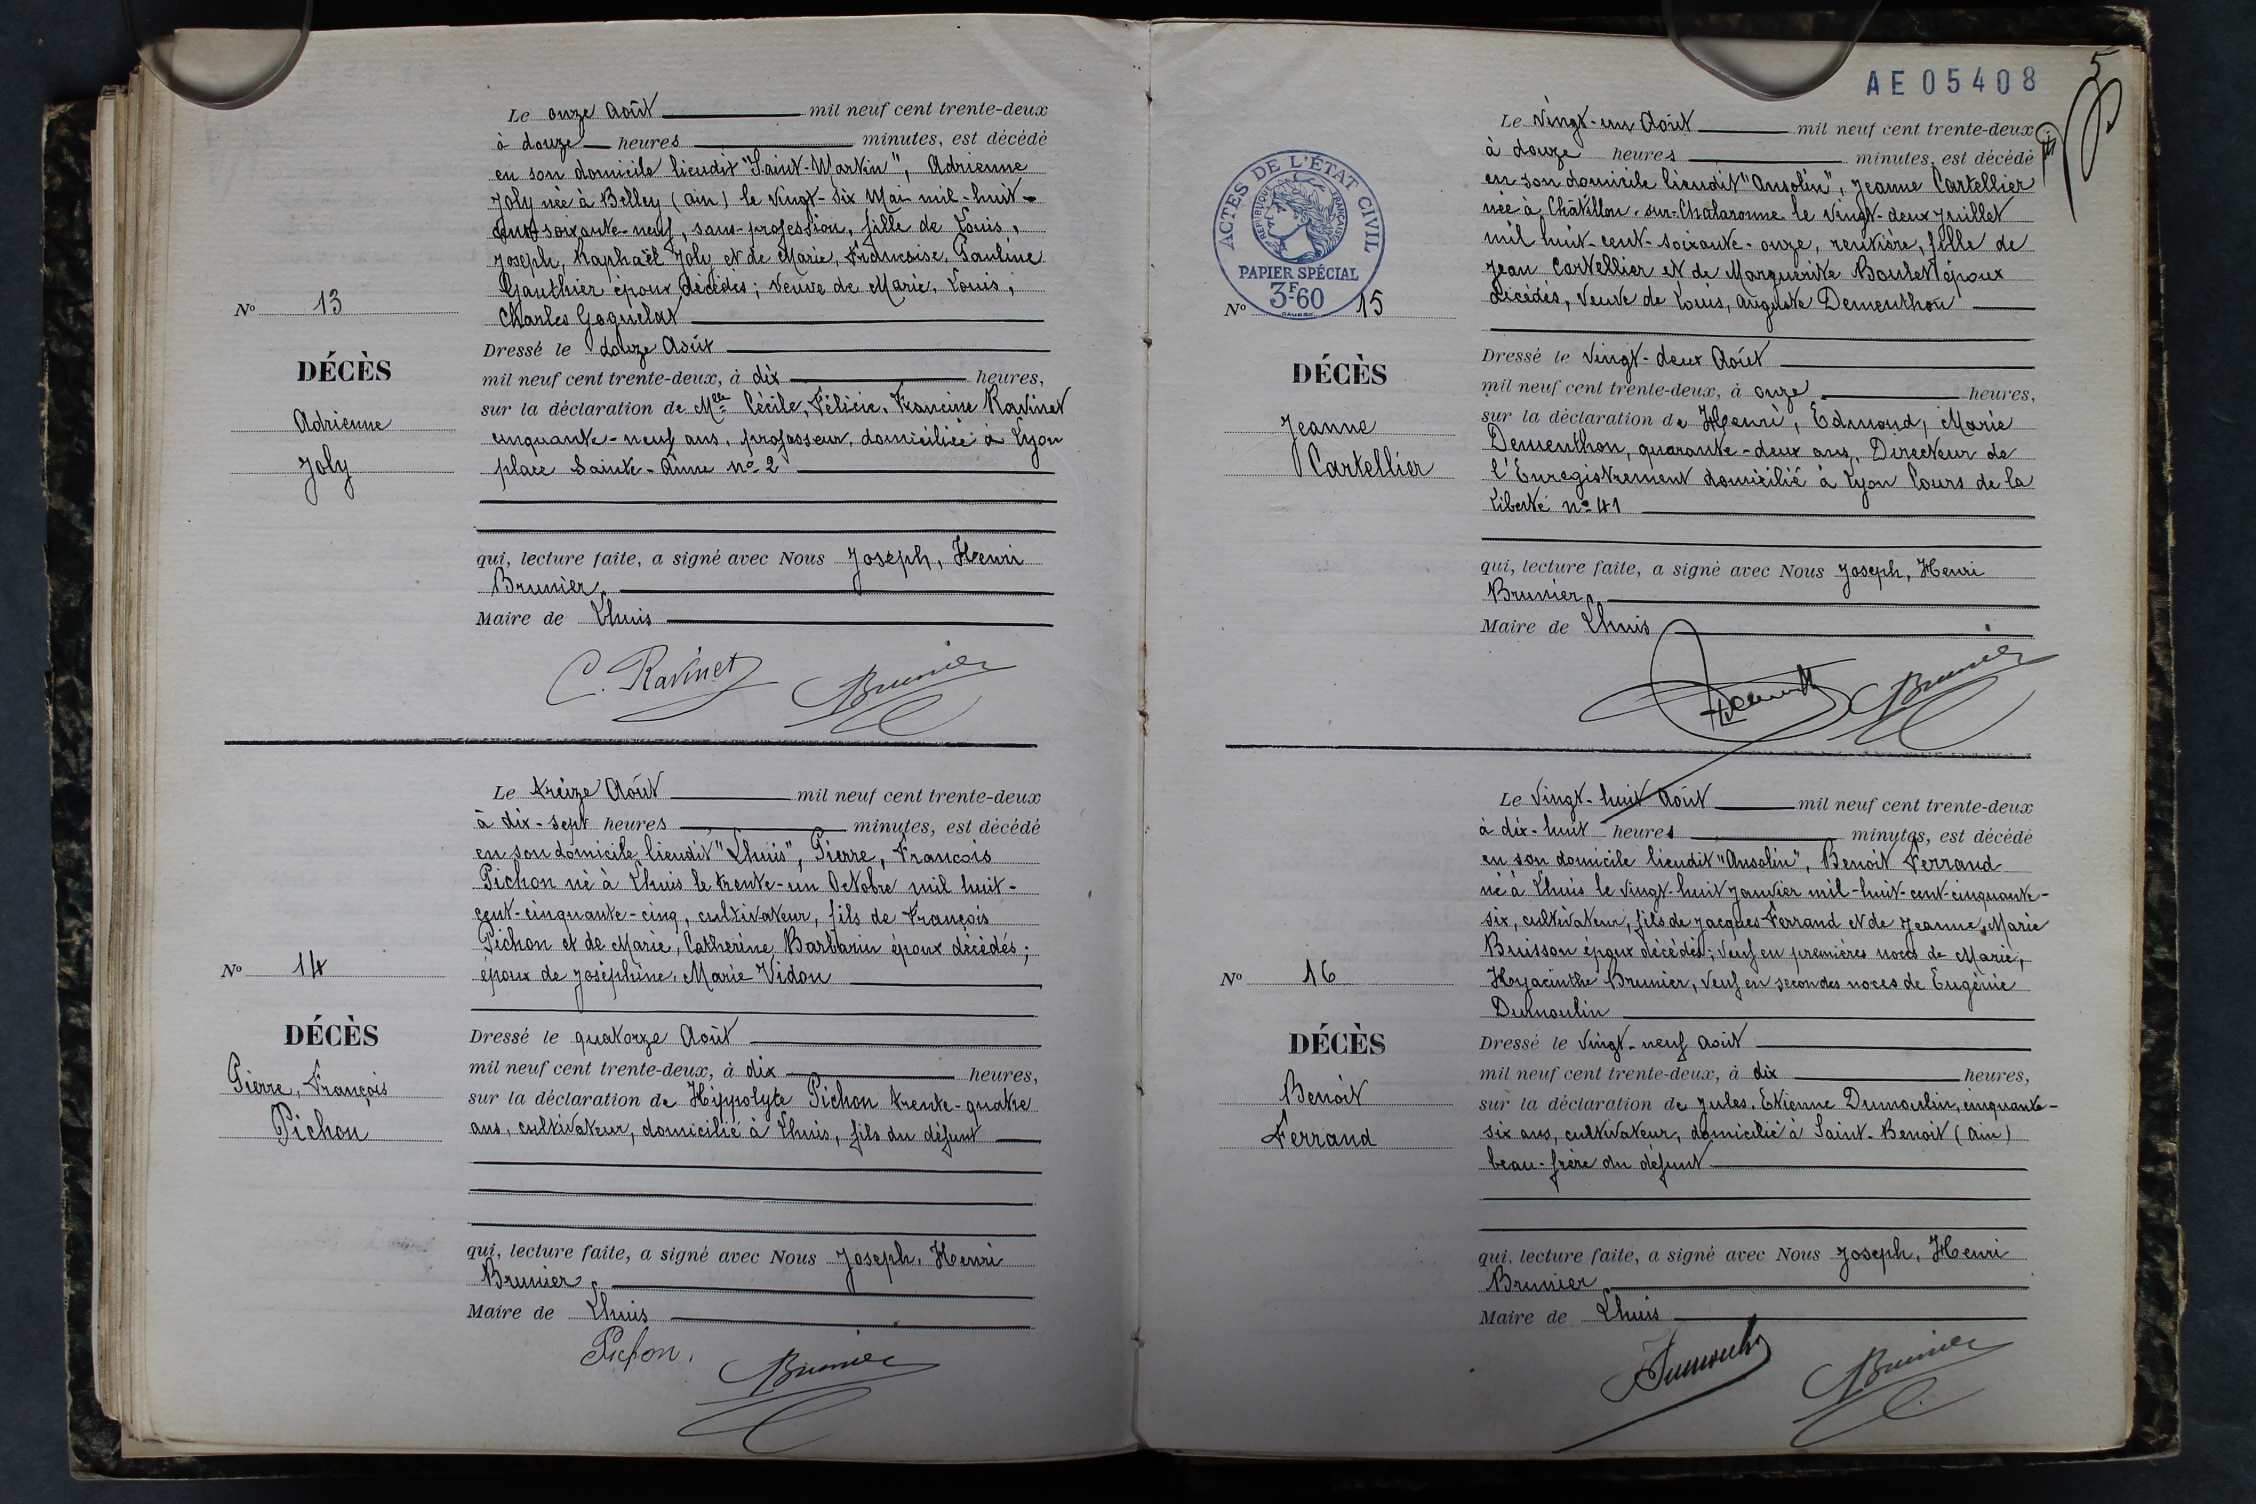 Le onze Août mil neuf cent trente-deux
à douze heures minutes, est décédé
en son domicile lieudit "Saint-Martin", Adrienne
Joly née à Belley (Ain) le vingt-six Mai mil-huit-
cent-soixante-neuf, sans profession, fille de Louis,
Joseph, Raphaël Joly et de Marie, Françoise, Pauline
Gauthier époux décédés; veuve de Marie, Louis,
Charles Goquelat
Nº 13
DÉCÈS
Adrienne
Joly
Dressé le douze Août
mil neuf cent trente-deux, à dix heures,
sur la déclaration de Melle Cécile, Félicie, Francine Ravinet
cinquante-neuf ans, professeur, domiciliée à Lyon
place Sainte-Anne nº 2
qui, lecture faite, a signé avec Nous Joseph, Henri
Brunier,
Maire de Lhuis
C. Ravinet Brunier
Le treize Août mil neuf cent trente-deux
à dix-sept heures minutes, est décédé
en son domicile lieudit "Lhuis", Pierre, François
Pichon né à Lhuis le trente-un Octobre mil huit-
cent-cinquante-cinq, cultivateur, fils de François
Pichon et de Marie, Catherine Barbarin époux décédés;
époux de Joséphine, Marie Vidon
Nº 14
DÉCÈS
Pierre, François
Pichon
Dressé le quatorze Août
mil neuf cent trente-deux, à dix heures,
sur la déclaration de Hippolyte Pichon trente-quatre
ans, cultivateur, domicilié à Lhuis, fils du défunt
qui, lecture faite, a signé avec Nous Joseph, Henri
Brunier,
Maire de Lhuis
Pichon. Brunier
AE 05408
5
ACTES DE L'ÉTAT CIVIL
RÉPUBLIQUE FRANÇAISE
PAPIER SPÉCIAL
3F60
Le vingt-un Août mil neuf cent trente-deux
à douze heures minutes, est décédé
en son domicile lieudit "Ansolin", Jeanne Cartellier
née à Châtillon-sur-Chalaronne le vingt-deux Juillet
mil huit-cent-soixante-onze, rentière, fille de
Jean Cartellier et de Marguerite Boulet époux
décédés, veuve de Louis, Auguste Dementhon
Nº 15
DÉCÈS
Jeanne
Cartellier
Dressé le vingt-deux Août
mil neuf cent trente-deux, à onze heures,
sur la déclaration de Henri, Edmond, Marie
Dementhon, quarante-deux ans, Directeur de
l'Enregistrement domicilié à Lyon Cours de la
Liberté nº 41
qui, lecture faite, a signé avec Nous Joseph, Henri
Brunier,
Maire de Lhuis
Brunier
Le vingt-huit Août mil neuf cent trente-deux
à dix-huit heures minutes, est décédé
en son domicile lieudit "Ansolin", Benoit Ferrand
né à Lhuis le vingt-huit Janvier mil-huit-cent-cinquante-
six, cultivateur, fils de Jacques Ferrand et de Jeanne, Marie
Buisson époux décédés; veuf en premières noces de Marie,
Hyacinthe Brunier, veuf en secondes noces de Eugénie
Dumoulin
Nº 16
DÉCÈS
Benoit
Ferrand
Dressé le vingt-neuf août
mil neuf cent trente-deux, à dix heures,
sur la déclaration de Jules, Etienne Dumoulin, cinquante-
six ans, cultivateur, domicilié à Saint-Benoit (Ain)
beau-frère du défunt
qui, lecture faite, a signé avec Nous Joseph, Henri
Brunier
Maire de Lhuis
Dumoulin Brunier